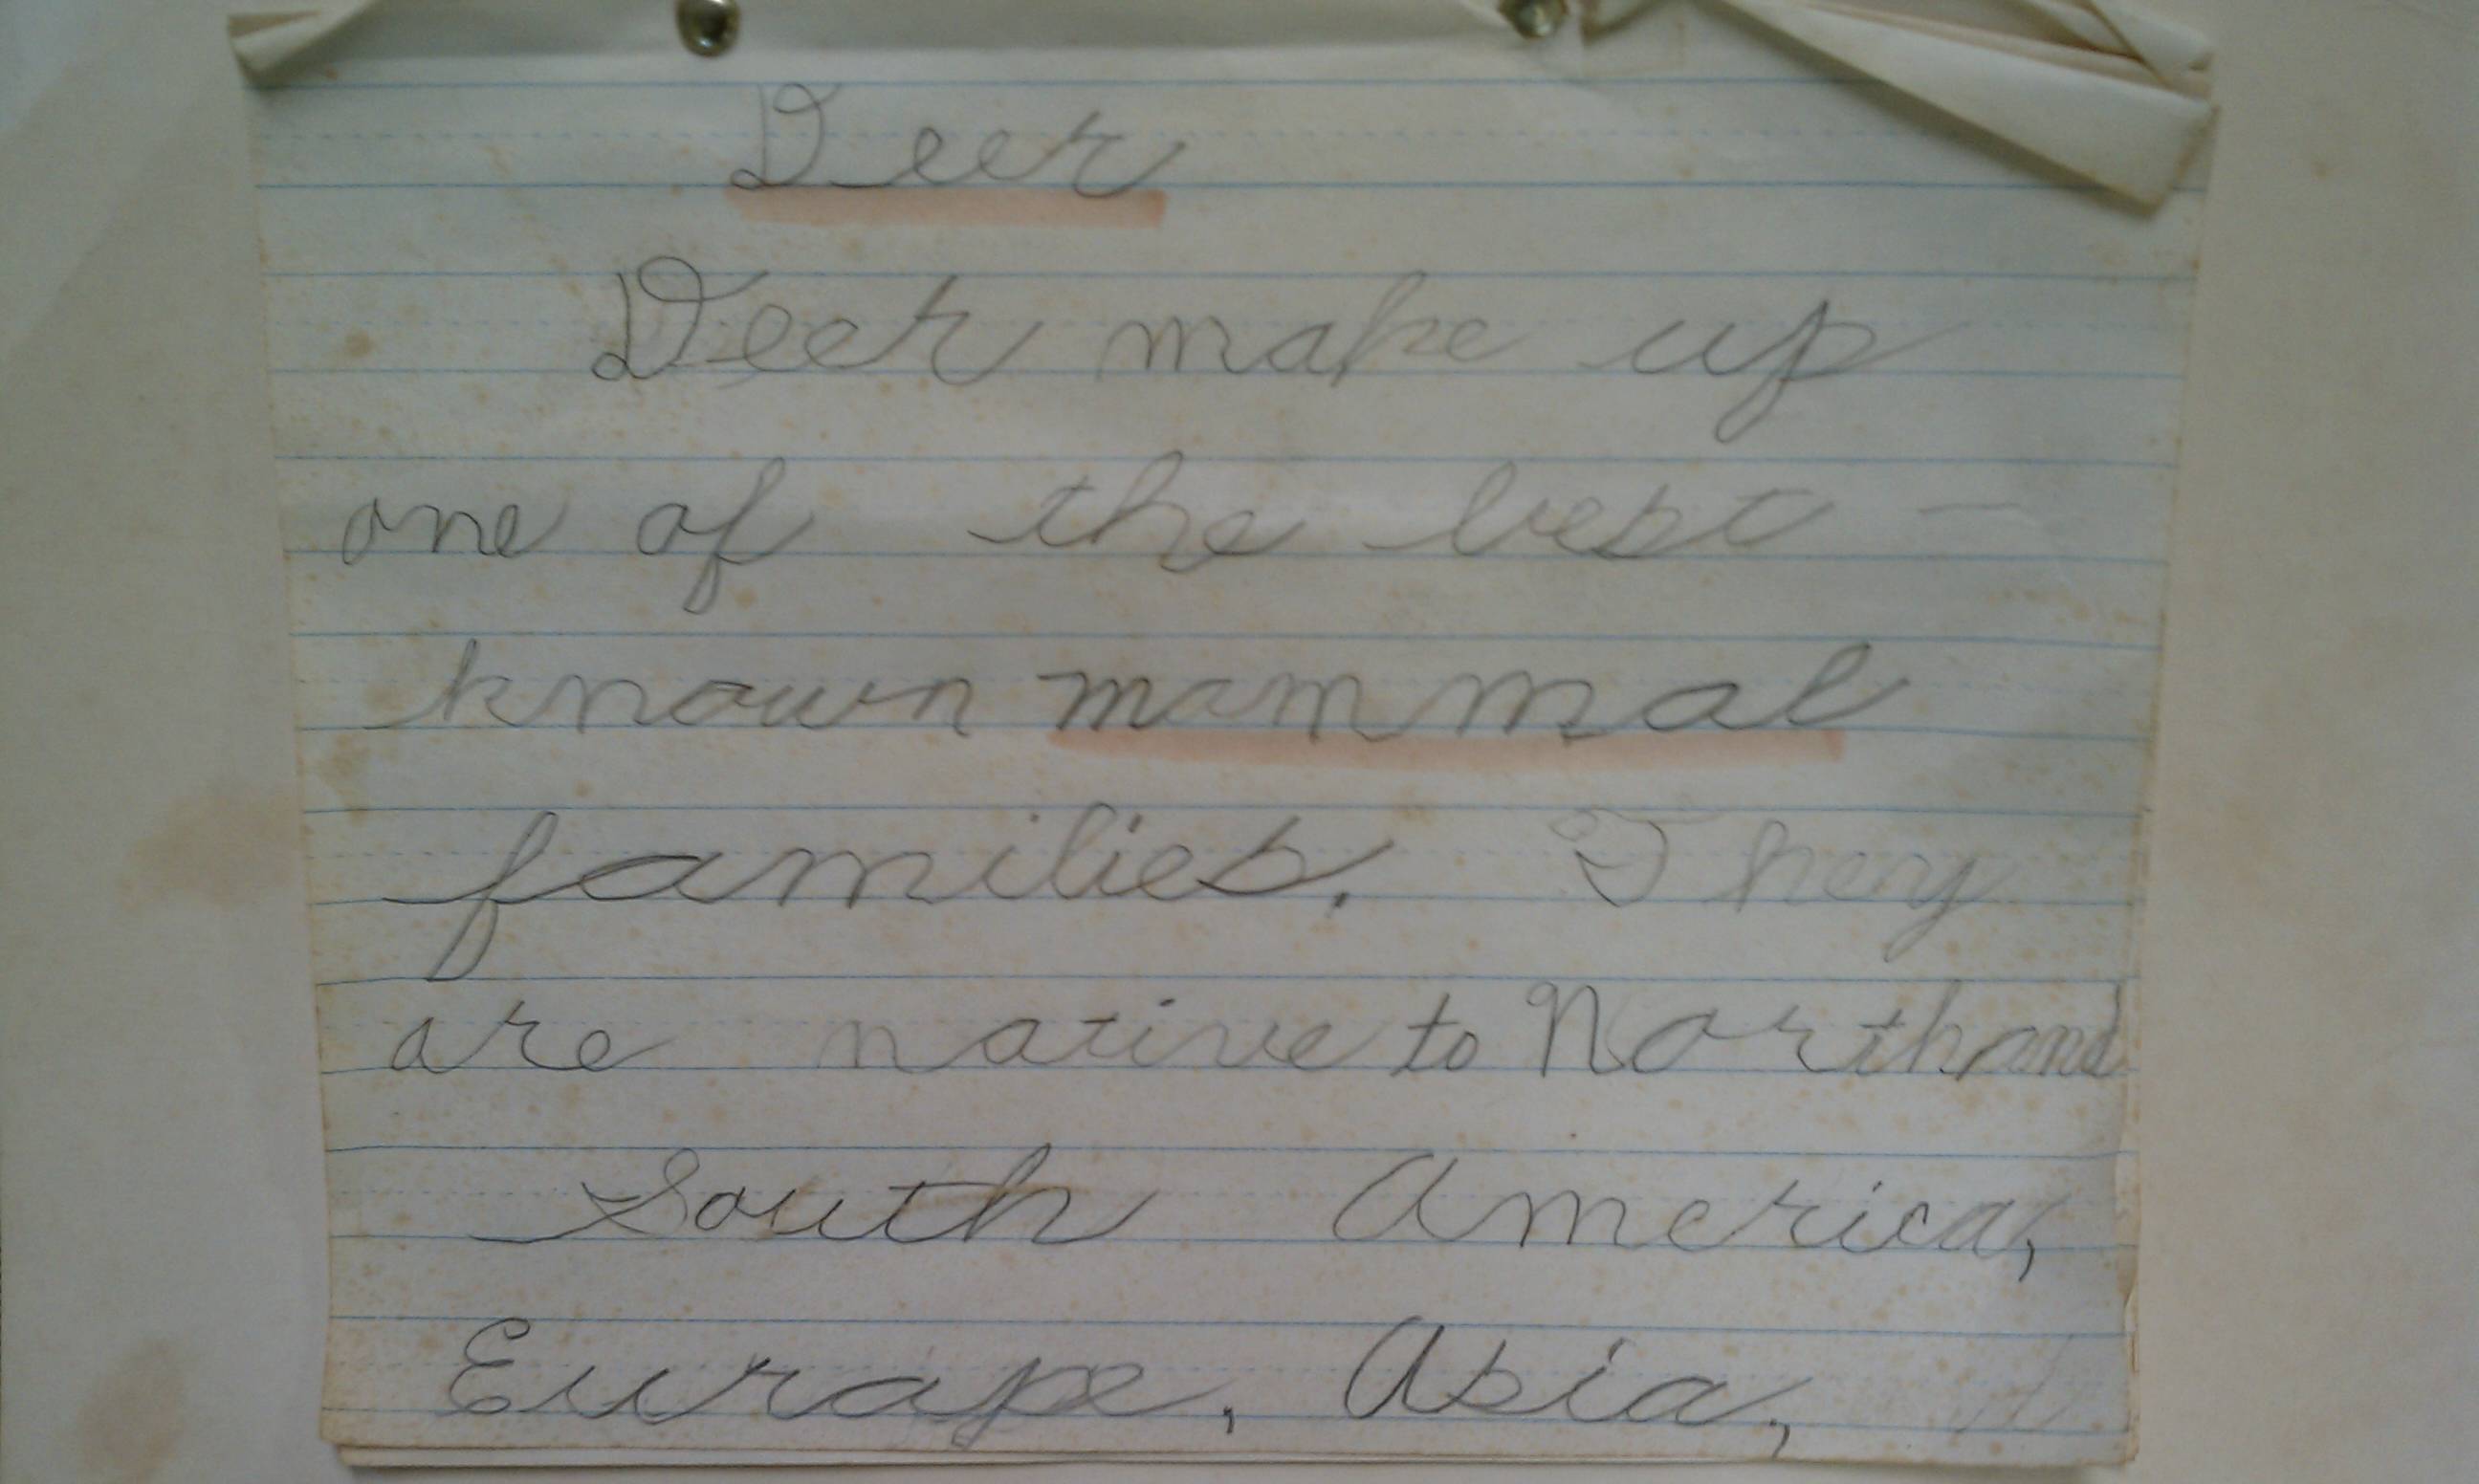 Deer
Deer make up
one of the best -
known mammal
families. They
are native to North and
South America,
Europe, Asia,